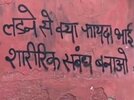 लड़ने से क्या फायदा भाई
शारीरिक संबंध बनाओ